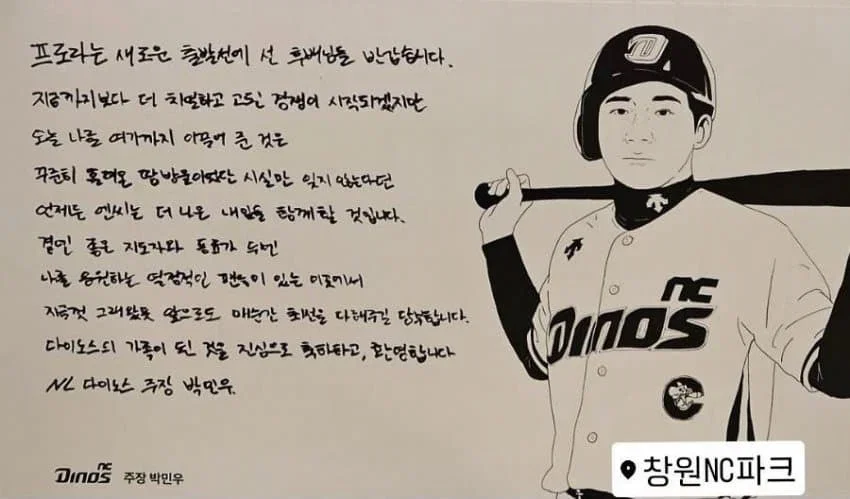 프로라는 새로운 출발선에 선 후배님들 반갑습니다.
지금까지보다 더 치열하고 고된 경쟁이 시작되겠지만
오늘 나를 여기까지 이끌어 준 것은
꾸준히 흘려온 땀방울이었단 사실만 잊지 않는다면
언제든 엔씨는 더 나은 내일을 함께할 것입니다.
곁엔 좋은 지도자와 동료가 주변
나를 응원하는 열정적인 팬들이 있는 이곳에서
지금껏 그래왔듯 앞으로도 매순간 최선을 다해주길 당부합니다.
다이노스의 가족이 된 것을 진심으로 축하하고, 환영합니다
NC 다이노스 주장 박민우.
NC DINOS 주장 박민우
D
NC
DINOS
C
창원NC파크